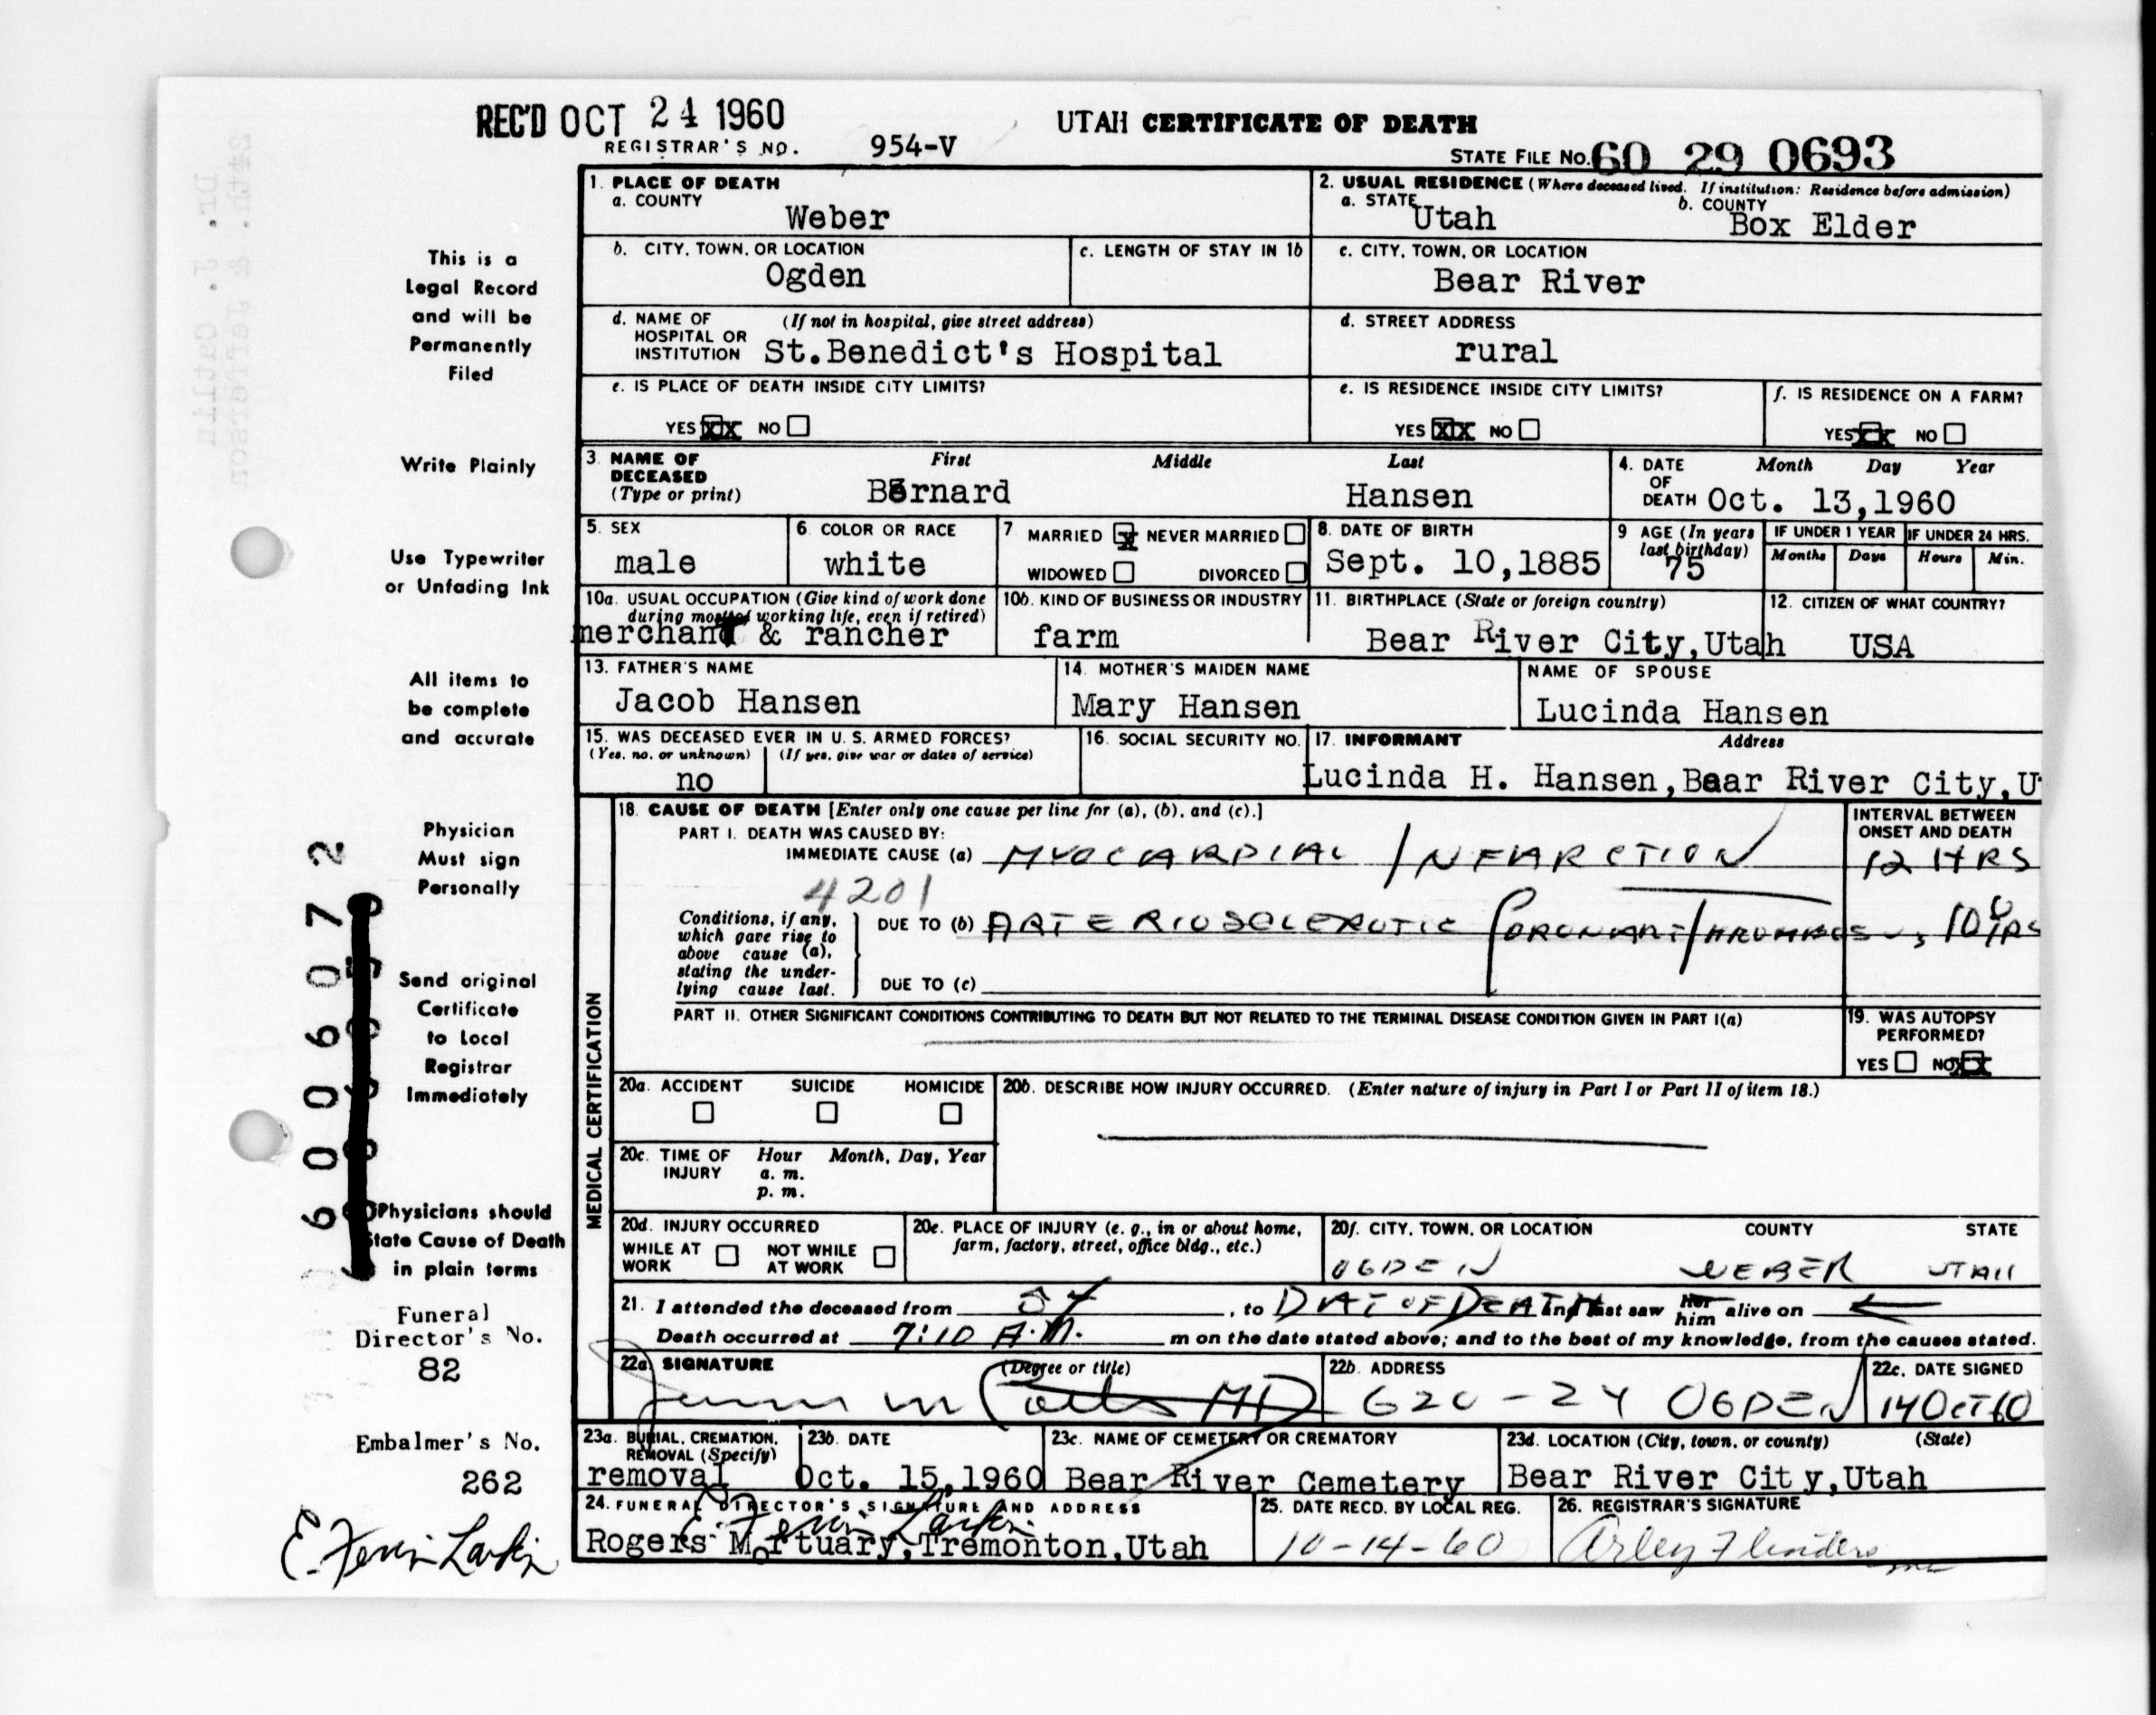 REC'D OCT 24 1960
UTAH CERTIFICATE OF DEATH
REGISTRAR'S NO. 954-V
STATE FILE NO. 60 29 0693
1. PLACE OF DEATH
a. COUNTY
Weber
2. USUAL RESIDENCE (Where deceased lived. If institution: Residence before admission)
a. STATE Utah
b. COUNTY
Box Elder
This is a
Legal Record
and will be
Permanently
Filed
b. CITY, TOWN, OR LOCATION
Ogden
c. LENGTH OF STAY IN 1b
c. CITY, TOWN, OR LOCATION
Bear River
d. NAME OF HOSPITAL OR INSTITUTION (If not in hospital, give street address)
St.Benedict's Hospital
d. STREET ADDRESS
rural
e. IS PLACE OF DEATH INSIDE CITY LIMITS?
YES XX NO
e. IS RESIDENCE INSIDE CITY LIMITS?
YES XX NO
f. IS RESIDENCE ON A FARM?
YES XX NO
Write Plainly
3. NAME OF DECEASED (Type or print)
First Middle Last
Bernard Hansen
4. DATE OF DEATH
Month Day Year
Oct. 13,1960
Use Typewriter
or Unfading Ink
5. SEX
male
6. COLOR OR RACE
white
7 MARRIED X NEVER MARRIED
WIDOWED DIVORCED
8. DATE OF BIRTH
Sept. 10,1885
9 AGE (In years last birthday)
75
IF UNDER 1 YEAR
Months Days
IF UNDER 24 HRS.
Hours Min.
10a. USUAL OCCUPATION (Give kind of work done during most of working life, even if retired)
merchant & rancher
10b. KIND OF BUSINESS OR INDUSTRY
farm
11. BIRTHPLACE (State or foreign country)
Bear River City,Utah
12. CITIZEN OF WHAT COUNTRY?
USA
All items to
be complete
and accurate
13. FATHER'S NAME
Jacob Hansen
14. MOTHER'S MAIDEN NAME
Mary Hansen
NAME OF SPOUSE
Lucinda Hansen
15. WAS DECEASED EVER IN U. S. ARMED FORCES?
(Yes, no, or unknown) (If yes, give war or dates of service)
no
16. SOCIAL SECURITY NO.
17. INFORMANT Address
Lucinda H. Hansen,Bear River City,U
Physician
Must sign
Personally
MEDICAL CERTIFICATION
18. CAUSE OF DEATH [Enter only one cause per line for (a), (b), and (c).]
PART I. DEATH WAS CAUSED BY:
IMMEDIATE CAUSE (a) MYOCARDIAL INFARCTION
INTERVAL BETWEEN ONSET AND DEATH
12 HRS
4201
Conditions, if any, which gave rise to above cause (a), stating the underlying cause last.
DUE TO (b) ARTERIOSCLEROTIC CORONARY THROMBOSIS
DUE TO (c)
PART II. OTHER SIGNIFICANT CONDITIONS CONTRIBUTING TO DEATH BUT NOT RELATED TO THE TERMINAL DISEASE CONDITION GIVEN IN PART I(a)
19. WAS AUTOPSY PERFORMED?
YES NO XX
6 0 0 6 0 7 2
Send original
Certificate
to Local
Registrar
Immediately
20a. ACCIDENT SUICIDE HOMICIDE
20b. DESCRIBE HOW INJURY OCCURRED. (Enter nature of injury in Part I or Part II of item 18.)
20c. TIME OF INJURY
Hour Month, Day, Year
a. m.
p. m.
Physicians should
State Cause of Death
in plain terms
20d. INJURY OCCURRED
WHILE AT WORK NOT WHILE AT WORK
20e. PLACE OF INJURY (e. g., in or about home, farm, factory, street, office bldg., etc.)
20f. CITY, TOWN, OR LOCATION COUNTY STATE
OGDEN WEBER UTAH
21. I attended the deceased from 57, to DAT OF DEATH and last saw her him alive on
Death occurred at 7:10 A.M. m on the date stated above; and to the best of my knowledge, from the causes stated.
Funeral
Director's No.
82
22a. SIGNATURE (Degree or title)
MD
22b. ADDRESS
620 - 24 OGDEN
22c. DATE SIGNED
14 OCT 60
Embalmer's No.
262
E. Fervin Larkin
23a. BURIAL, CREMATION, REMOVAL (Specify)
removal
23b. DATE
Oct. 15,1960
23c. NAME OF CEMETERY OR CREMATORY
Bear River Cemetery
23d. LOCATION (City, town, or county) (State)
Bear River City,Utah
24. FUNERAL DIRECTOR'S SIGNATURE AND ADDRESS
E. Fervin Larkin
Rogers Mortuary,Tremonton,Utah
25. DATE RECD. BY LOCAL REG.
10-14-60
26. REGISTRAR'S SIGNATURE
Arley Flinders